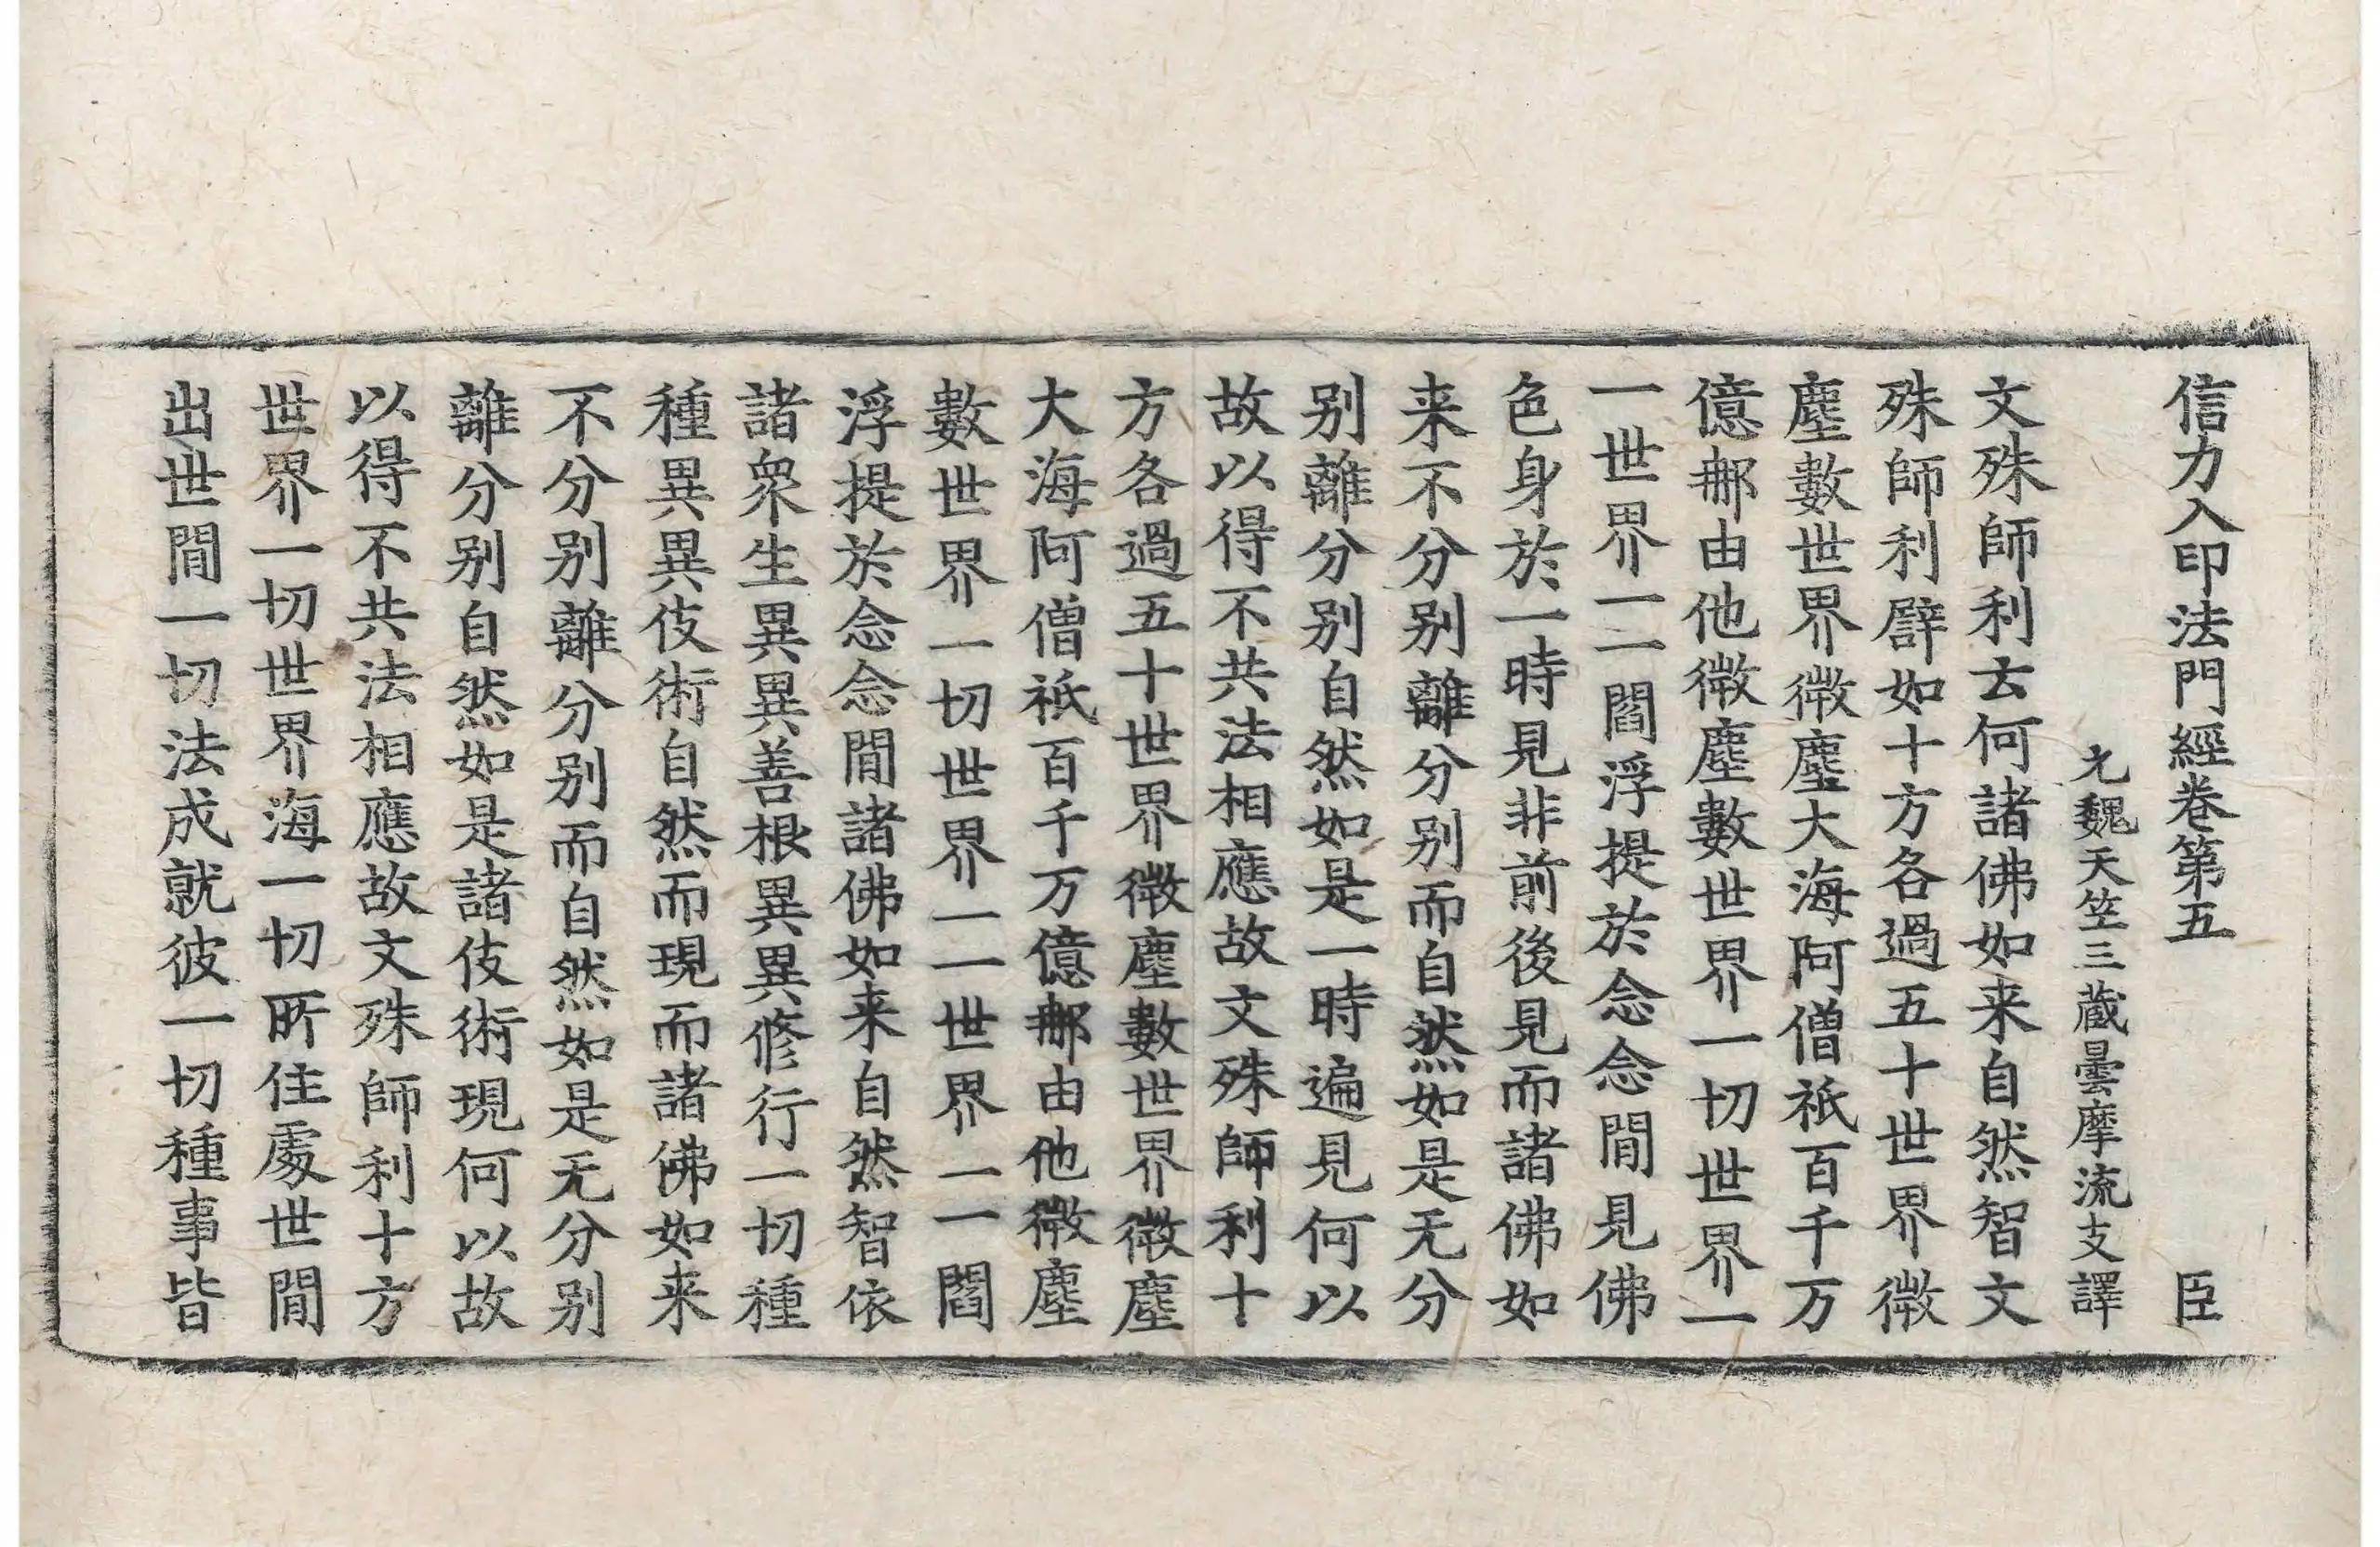 信力入印法門經卷第五　臣
元魏天竺三藏曇摩流支譯
文殊師利云何諸佛如来自然智文
殊師利譬如十方各過五十世界微
塵數世界微塵大海阿僧祇百千万
億那由他微塵數世界一切世界一
一世界一一閻浮提於念念閒見佛
色身於一時見非前後見而諸佛如
来不分别離分别而自然如是无分
别離分别自然如是一時遍見何以
故以得不共法相應故文殊師利十
方各過五十世界微塵數世界微塵
大海阿僧祇百千万億那由他微塵
數世界一切世界一一世界一一閻
浮提於念念閒諸佛如来自然智依
諸衆生異異善根異異修行一切種
種異異伎術自然而現而諸佛如来
不分别離分别而自然如是无分别
離分别自然如是諸伎術現何以故
以得不共法相應故文殊師利十方
世界一切世界海一切所住處世閒
出世閒一切法成就彼一切種事皆